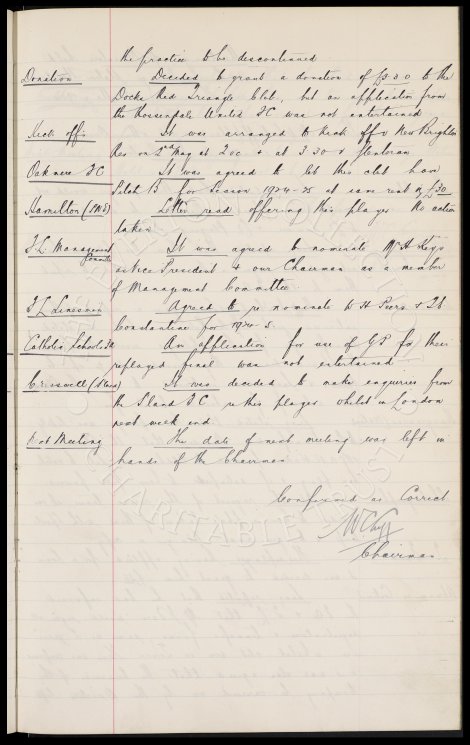 the practice to be discontinued
Donation Decided to grant a donation of £3.3.0 to the
Docks Red Triangle Club, but an application from
the Rossendale United FC was not entertained
Kick offs It was arranged to kick off v New Brighton
Res on 2nd May at 2 oc & at 3.30 v Glentoran
Oakmere FC It was agreed to let this club have
Pitch B for season 1924-25 at same rent of £30
Hamilton (IME) Letter read offering this player No action
taken
FL Management Committee It was agreed to nominate Mr H Keys
as Vice President & our Chairman as a member
of Management Committee
FL Linesmen Agreed to re nominate W H Peers &
Constantine for 1924-5.
Catholic Schools FA An application for use of GP for their
replayed final was not entertained
Cresswell It was decided to make enquiries from
the FC re this player whilst in London
next week end
Next Meeting The date of next meeting was left in
hands of the Chairman
Confirmed as Correct
W C Cuff
Chairman
CHARITABLE